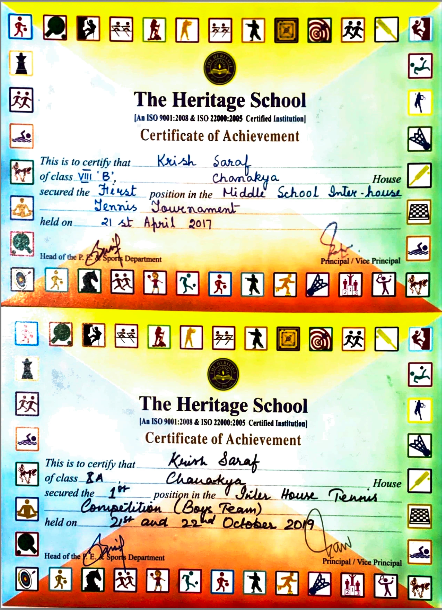 The Heritage School
[An ISO 9001:2008 & ISO 22000:2005 Certified Institution]
Certificate of Achievement
This is to certify that Krish Saraf
of class VIII 'B', Chanakya House
secured the First position in the Middle School Inter-house
Tennis Tournament
held on 21 st April 2017
Head of the P. E. & Sports Department Principal / Vice Principal
The Heritage School
[An ISO 9001:2008 & ISO 22000:2005 Certified Institution]
Certificate of Achievement
This is to certify that Krish Saraf
of class XA Chanakya House
secured the 1st position in the Inter House Tennis
Competition (Boys Team)
held on 21st and 22nd October 2019
Head of the P. E. & Sports Department Principal / Vice Principal